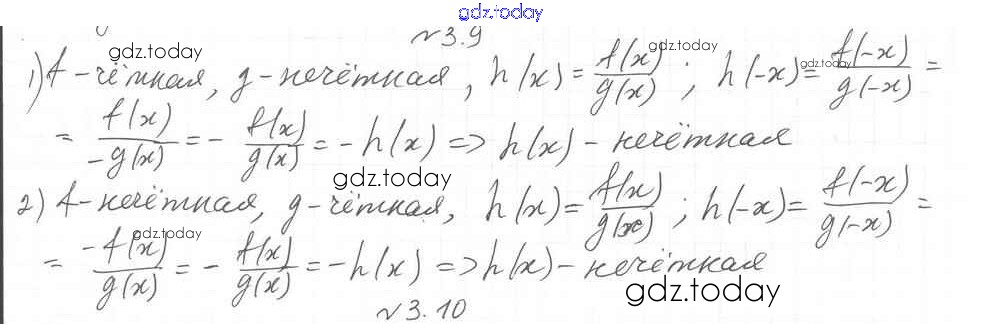 gdz.today
№3.9
gdz.today gdz.today
1) f-чётная, g-нечётная, h(x) = f(x)/g(x) ; h(-x) = f(-x)/g(-x) =
gdz.today
= f(x)/-g(x) = - f(x)/g(x) = -h(x) => h(x) - нечётная
gdz.today
2) f-нечётная, g-чётная, h(x) = f(x)/g(x) ; h(-x) = f(-x)/g(-x) =
gdz.today
= -f(x)/g(x) = - f(x)/g(x) = -h(x) => h(x) - нечётная
gdz.today
№3.10